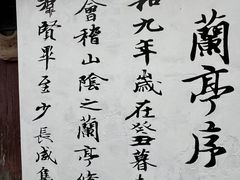 蘭亭序
和九年歲在癸丑暮
會稽山陰之蘭亭脩
羣賢畢至少長咸集